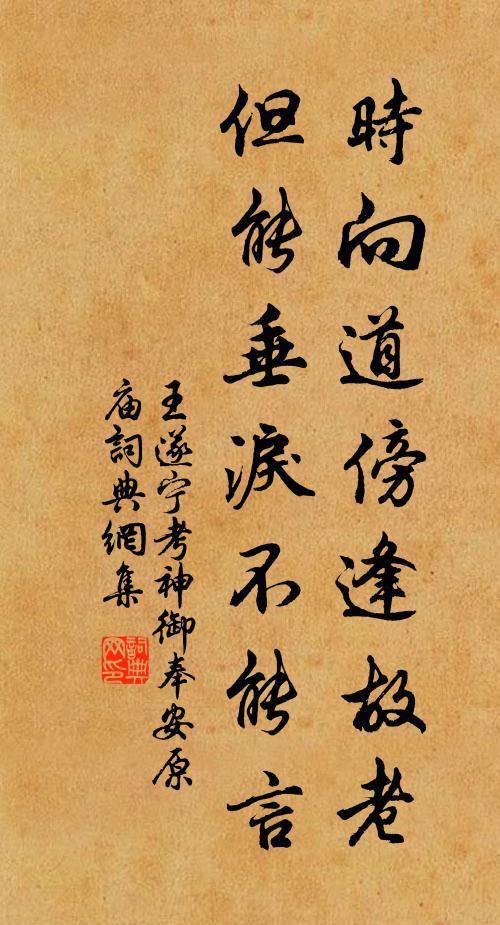 時向道傍逢故老
但能垂淚不能言
王遂宁考神御奉安原
庙詞典網集
詞典网印